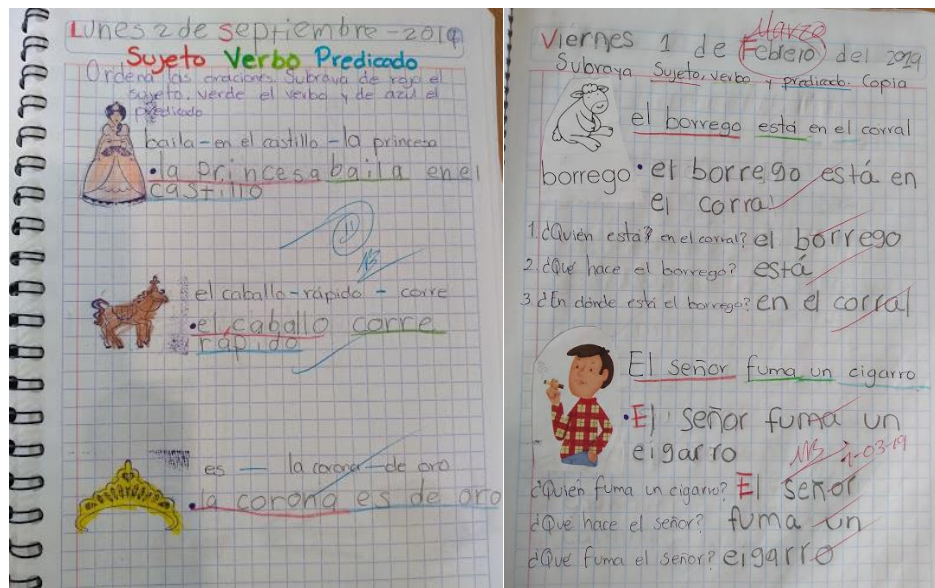 Lunes 2 de septiembre - 2019
Sujeto Verbo Predicado
Ordena las oraciones. Subraya de rojo el
sujeto, verde el verbo y de azul el
predicado
baila - en el castillo - la princesa
• la princesa baila en el
castillo
el caballo - rápido - corre
• el caballo corre
rápido
es — la corona - de oro
• la corona es de oro
Viernes 1 de Febrero del 2019
Marzo
Subraya Sujeto, verbo y predicado. Copia
el borrego está en el corral
borrego
• el borrego está en
el corral
1. ¿Quién está? en el corral? el borrego
2. ¿Qué hace el borrego? está
3. ¿En dónde está el borrego? en el corral
El señor fuma un cigarro
• El señor fuma un
eigarro
MB 1-03-19
¿Quién fuma un cigarro? El señor
¿Qué hace el señor? fuma un
¿Qué fuma el señor? eigarro